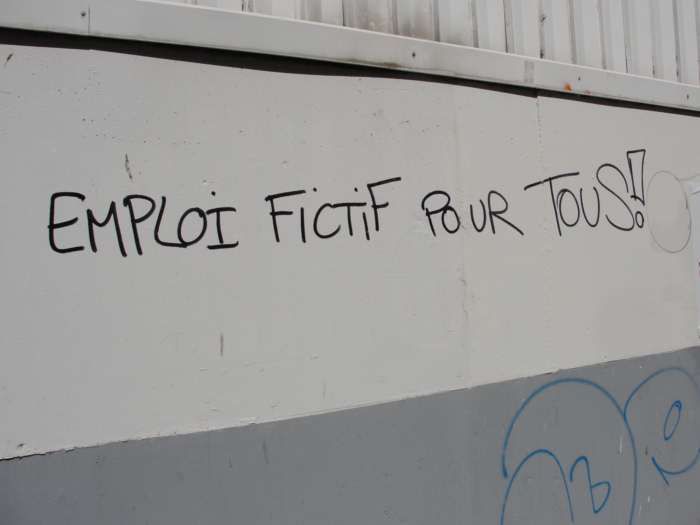 EMPLOi FiCTiF POUR TOUS!